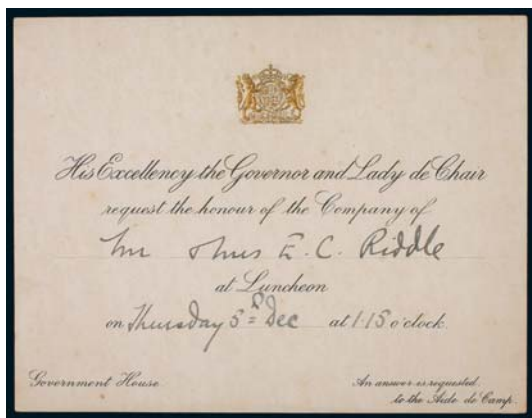 His Excellency the Governor and Lady de Chair
request the honour of the Company of
E. C. Riddle
at Luncheon
on Thursday 5th Dec at 1.15 o'clock.
Government House
An answer is requested
to the Aide de Camp.